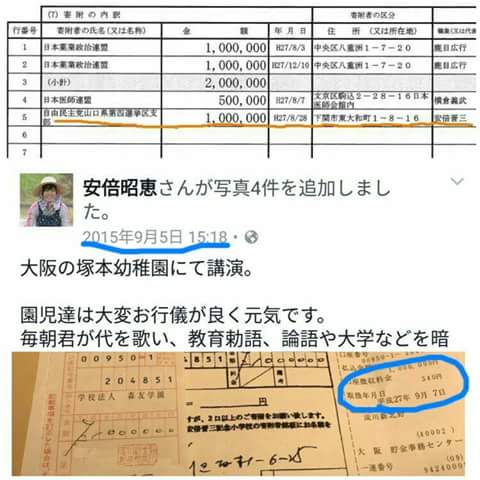 (7) 寄附の内訳
寄附者の区分
行番号 寄附者の氏名(又は名称) 金 額 年月日 住 所(又は所在地) 職業(又は代表
1 日本薬業政治連盟 1,000,000 H27/8/3 中央区八重洲1-7-20 鹿目広行
2 日本薬業政治連盟 1,000,000 H27/12/10 中央区八重洲1-7-20 鹿目広行
3 (小計) 2,000,000
4 日本医師連盟 500,000 H27/8/7 文京区本駒込2-28-16日本医師会館内 横倉義武
5 自由民主党山口県第四選挙区支部 1,000,000 H27/8/28 下関市東大和町1-8-16 安倍晋三
6
7
安倍昭恵さんが写真4件を追加しまし
た。
2015年9月5日 15:18
大阪の塚本幼稚園にて講演。
園児達は大変お行儀が良く元気です。
毎朝君が代を歌い、教育勅語、論語や大学などを暗
00950 1
204851
学校法人 森友学園
204851
料金
備考
円
すが、2口以上のご寄附をお願い致します。
安倍晋三記念小学校の寄附者銘板にお名前を
6-25
払込金額
1,000,000円
540円
取扱年月日
平成27年 9月 7日
淀川新北野
(40002)
大阪 貯金事務センター
一連番号
94240009